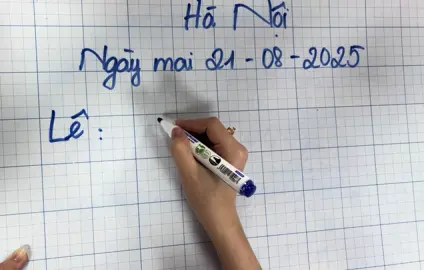 Hà Nội
Ngày mai 21-08-2025
Lê: